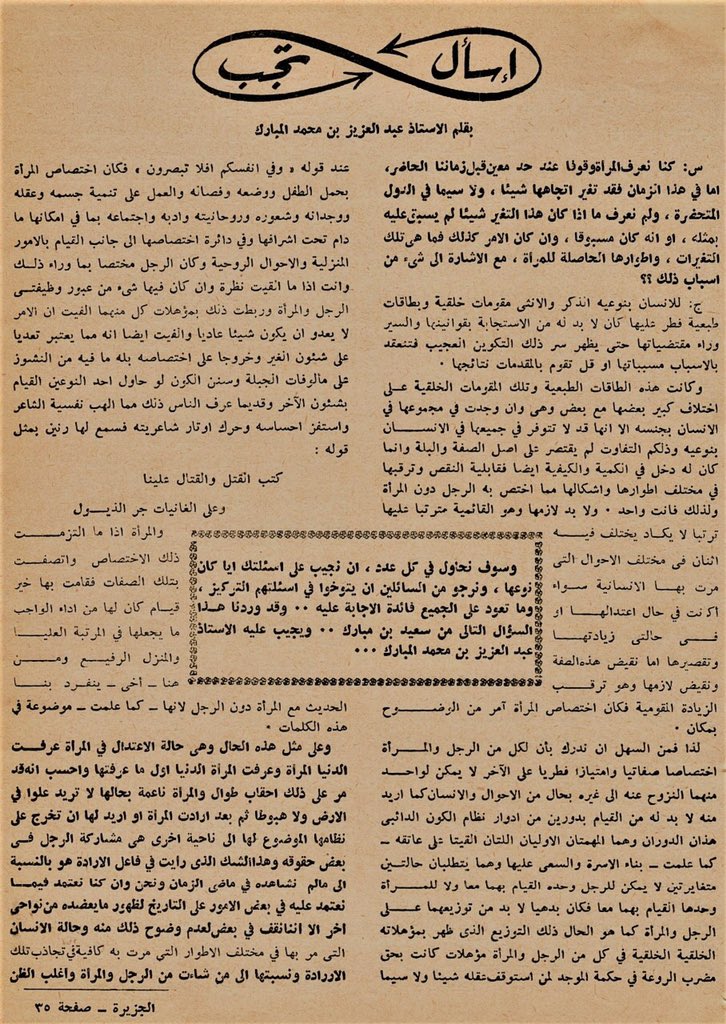 إسأل تجب
بقلم الاستاذ عبد العزيز بن محمد المبارك
س: كنا نعرف المرأة وقوفا عند حد معين قبل زماننا الحاضر،
اما في هذا الزمان فقد تغير اتجاهها شيئا ، ولا سيما في الدول
المتحضرة ، ولم نعرف ما اذا كان هذا التغير شيئا لم يسبق عليه
بمثله ، او انه كان مسبوقا ، وان كان الامر كذلك فما هي تلك
التغيرات ، واطوارها الحاصلة للمرأة ، مع الاشارة الى شيء من
اسباب ذلك ؟؟
ج: للانسان بنوعيه الذكر والانثى مقومات خلقية وبطاقات
طبعية فطر عليها كان لا بد له من الاستجابة بقوانينها والسير
وراء مقتضياتها حتى يظهر سر ذلك التكوين العجيب فتنعقد
بالاسباب مسبباتها او قل تقوم بالمقدمات نتائجها ٠
وكانت هذه الطاقات الطبعية وتلك المقومات الخلقية على
اختلاف كبير بعضها مع بعض وهي وان وجدت في مجموعها في
الانسان بجنسه الا انها قد لا تتوفر في جميعها في الانسان
بنوعيه وذلكم التفاوت لم يقتصر على اصل الصفة والبلة وانما
كان له دخل في الكمية والكيفية ايضا فقابلية النقص وترقبها
في مختلف اطوارها واشكالها مما اختص به الرجل دون المرأة
ولذلك فانت واحد ٠ ولا بد لازمها وهو القائمية مترتبا عليها
ترتبا لا يكاد يختلف فيه
اثنان في مختلف الاحوال التى
مرت بها الانسانية سواء
اكنت في حال اعتدالها او
في حالتى زيادتها
وتقصيرها اما نقيض هذه الصفة
ونقيض لازمها وهو ترقب
الزيادة المقومية فكان اختصاص المرأة آمر من الوضوح
بمكان ٠
لذا فمن السهل ان ندرك بأن لكل من الرجل والمرأة
اختصاصا صفاتيا وامتيازا فطريا على الآخر لا يمكن لواحد
منهما النزوح عنه الى غيره بحال من الاحوال والانسان كما اريد
منه لا بد له من القيام بدورين من ادوار نظام الكون الدائبى
هذان الدوران وهما المهمتان الاوليان اللتان القيتا على عاتقه –
كما علمت – بناء الاسرة والسعى عليها وهما يتطلبان حالتين
متغايرتين لا يمكن للرجل وحده القيام بهما معا ولا للمرأة
وحدها القيام بهما معا فكان بدهيا لا بد من توزيعهما على
الرجل والمرأة كما هو الحال ذلك التوزيع الذى ظهر بمؤهلاته
الخلقية الخلقية في كل من الرجل والمرأة مؤهلات كانت بحق
مضرب الروعة في حكمة الموجد لمن استوقف تنقله شيئا ولا سيما
عند قوله « وفي انفسكم افلا تبصرون » فكان اختصاص المرأة
بحمل الطفل ووضعه وفصاله والعمل على تنمية جسمه وعقله
ووجدانه وشعوره وروحانيته وادبه واجتماعه بما في امكانها ما
دام تحت اشرافها وفي دائرة اختصاصها الى جانب القيام بالامور
المنزلية والاحوال الروحية وكان الرجل مختصا بما وراء ذلك
وانت اذا ما القيت نظرة وان كان فيها شيء من عبور وظيفتى
الرجل والمرأة وربطت ذلك بمؤهلات كل منهما الفيت ان الامر
لا يعدو ان يكون شيئا عاديا والفيت ايضا انه مما يعتبر تعديا
على شئون الغير وخروجا على اختصاصه بله ما فيه من النشوز
على مالوفات الجبلة وسنن الكون لو حاول احد النوعين القيام
بشئون الآخر وقديما عرف الناس ذلك مما الهب نفسية الشاعر
واستفز احساسه وحرك اوتار شاعريته فسمع لها رنين بمثل
قوله :
كتب القتل والقتال علينا
وعلى الغانيات جر الذيول
والمرأة اذا ما التزمت
ذلك الاختصاص واتصفت
بتلك الصفات فقامت بها خير
قيام كان لها من اداء الواجب
ما يجعلها في المرتبة العليا
والمنزل الرفيع ومن
هنا – أخي – ينفرد بنا
الحديث مع المرأة دون الرجل لانها – كما علمت – موضوعة في
هذه الكلمات ٠
وعلى مثل هذه الحال وهى حالة الاعتدال في المرأة عرفت
الدنيا المرأة وعرفت المرأة الدنيا اول ما عرفتها واحسب انه قد
مر على ذلك احقاب طوال والمرأة ناعمة بحالها لا تريد علوا في
الارض ولا هبوطا ثم بعد ارادت المرأة او اريد لها ان تخرج على
نظامها الموضوع لها الى ناحية اخرى هى مشاركة الرجل فى
بعض حقوقه وهذا الشك الذى رأيت في فاعل الارادة هو بالنسبة
الى مالم نشاهده في ماضى الزمان ونحن وان كنا نعتمد فيما
نعتمد عليه في بعض الامور على التاريخ لظهور ما يعضده من نواحى
اخر الا اننا نقف في بعض لعدم وضوح ذلك منه وحالة الانسان
التى مر بها في مختلف الاطوار التى مرت به كافية في تجاذب تلك
الارادة ونسبتها الى من شاءت من الرجل والمرأة واغلب الظن
وسوف نحاول في كل عدد ، ان نجيب على اسئلتك ايا كان
نوعها ، ونرجو من السائلين ان يتوخوا في اسئلتهم التركيز ،
وما تعود على الجميع فائدة الاجابة عليه ٠٠ وقد وردنا هذا
السؤال التالى من سعيد بن مبارك ٠٠ ويجيب عليه الاستاذ
عبد العزيز بن محمد المبارك ٠٠٠
الجزيرة – صفحة ٣٥